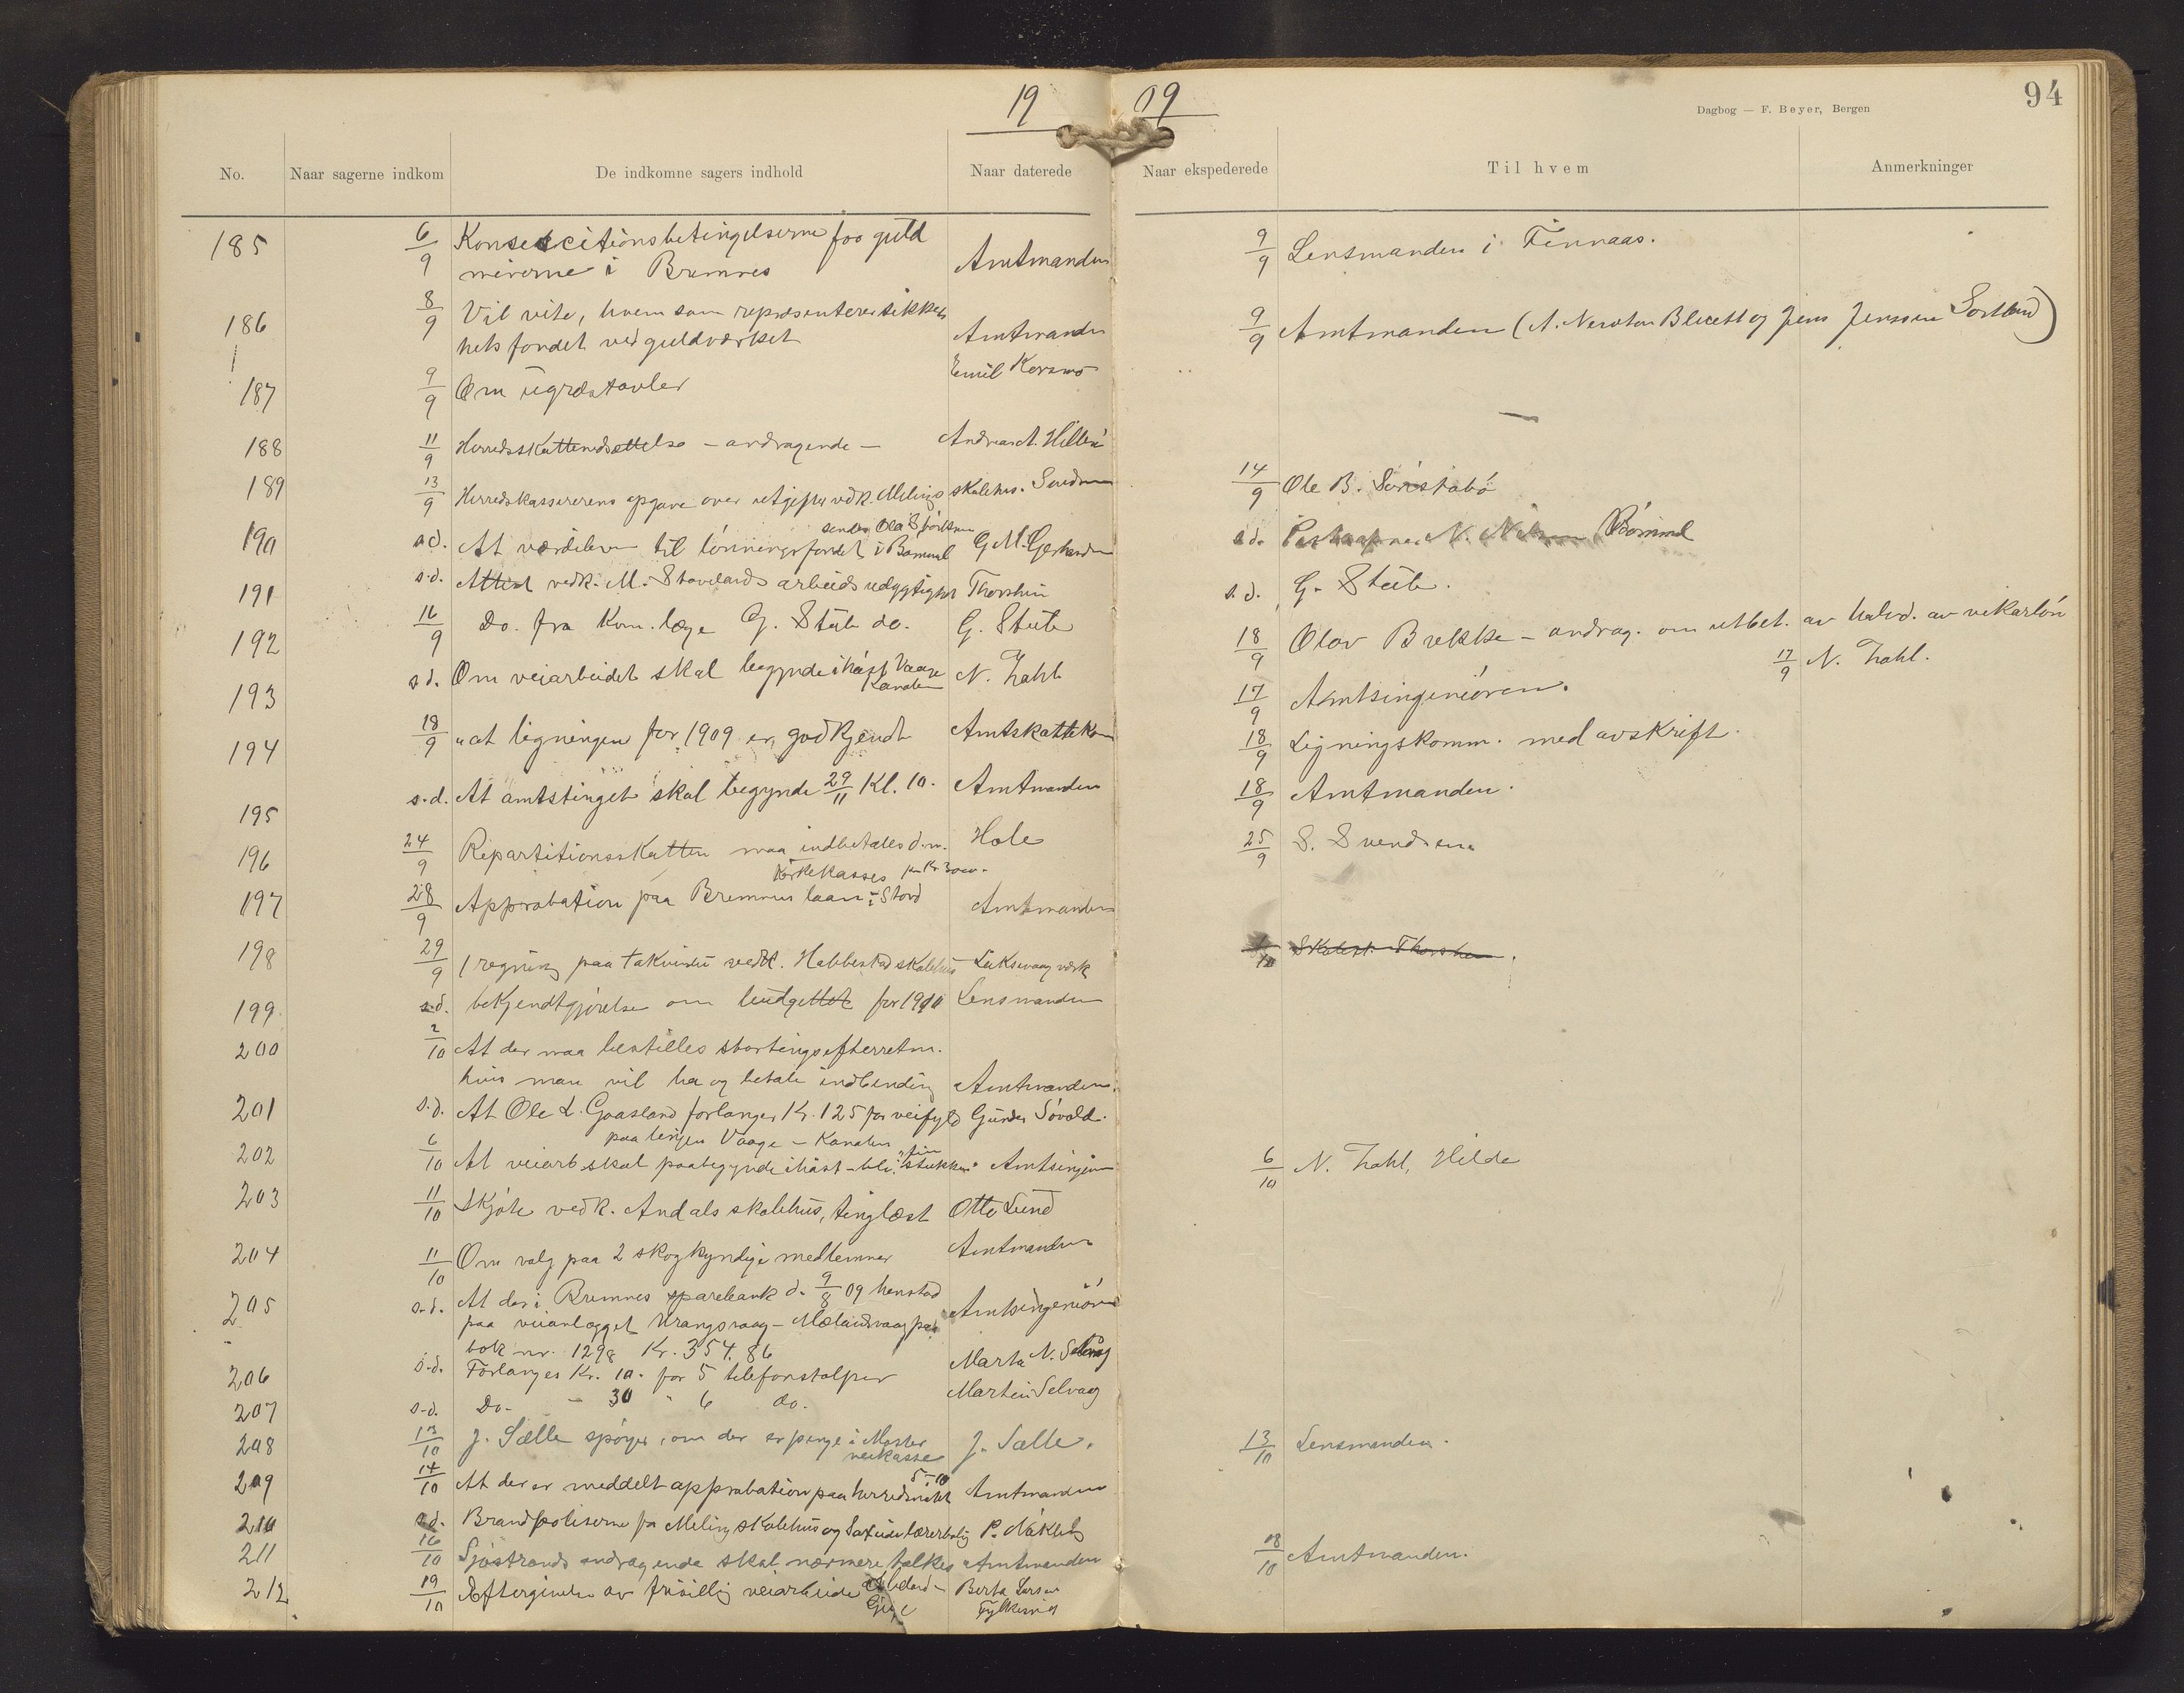 19 09
Dagbog — F. Beyer, Bergen
94
No. Naar sagerne indkom De indkomne sagers indhold Naar daterede Naar ekspederede Til hvem Anmerkninger
185 6/9 for guld
i Bremnes Amtmanden 9/9 Lensmanden i Finnaas.
186 8/9 Vil vite, hvem som repræsenterer sikker
hets fondet ved guldværket Amtmanden 9/9 Amtmanden (A. Newton og Jens Jensen
187 9/9 Om ugræstavler Emil Korsmo
188 11/9 Herredsskattenedsættelse - andragende - Andreas A.
189 13/9 Herredskassererens opgave over utgifter vedk. Melings skolehus. 14/9 Ole B.
sendes Ola
190 s.d. At til lønningsfondet i Bømmel G. M. s.d. N. Bømmel
191 s.d. Attest vedk. M. Stavelands arbeids Thorshein s.d. G. Stub.
192 16/9 Do. fra Kom. læge G. Stub do. G. Stub 18/9 Olav Brekke - andrag. om utbet. av halvd. av vikarløn
193 s.d. Om veiarbeidet skal begynde i høst Vaage N. Zahl 17/9 Amtsingeniøren. 17/9 N. Zahl.
Kanalen
194 18/9 at ligningen for 1909 er godkjendt Amtskattekom 18/9 Ligningskomm. med avskrift.
195 s.d. At amtstinget skal begynde 29/11 Kl. 10. Amtmanden 18/9 Amtmanden.
196 24/9 Repartitionsskatten maa indbetales d.m. Hole 25/9 S. Svendsen
197 28/9 Approbation paa Bremnes laan i Stord Amtmanden
kirkekasses
198 29/9 1 regning paa vedk. Habbestad skolehus Laksevaag værk /10 Skolest. Thorshein
199 s.d. bekjendtgjørelse om budgettet for 1910 Lensmanden
200 2/10 At der maa bestilles stortingsefterretn.
hvis man vil ha og betale indbinding Amtmanden.
201 s.d. At Ole L. Gaasland forlanger Kr. 125 for veifyld Gunder Søvold.
paa linjen Vaage - Kanalen
202 6/10 At veiarb. skal paabegyndes i høst - Amtsingen 6/10 N. Zahl, Hilde
203 11/10 Skjøte vedk. Andals skolehus, tinglæst Otto Lund
204 11/10 Om valg paa 2 skogkyndige medlemmer Amtmanden
205 s.d. At der i Bremnes sparebank d. 9/8 09 henstod Amtsingeniøren
paa veianlægget Urangsvaag - Mælandsvaag paa
bok nr. 1298 Kr. 354.86
206 s.d. Forlanges Kr. 10. for 5 telefonstolper Marta N. Selvaag
207 s.d. Do. - 30 " 6 do. Martin Selvaag
208 13/10 J. Sælle spørger, om der er penge i Moster J. Sælle. 13/10 Lensmanden.
veikasse
209 14/10 At der er meddelt approbation paa herredsmøtet 5-10 Amtmanden
210 s.d. Brandpoliserne fra Meling skolehus og lærerbolig P.
211 16/10 Sjøstrands andragende skal nærmere Amtmanden 18/10 Amtmanden.
212 19/10 Eftergivelse av frivillig veiarbeide Berta Larsen